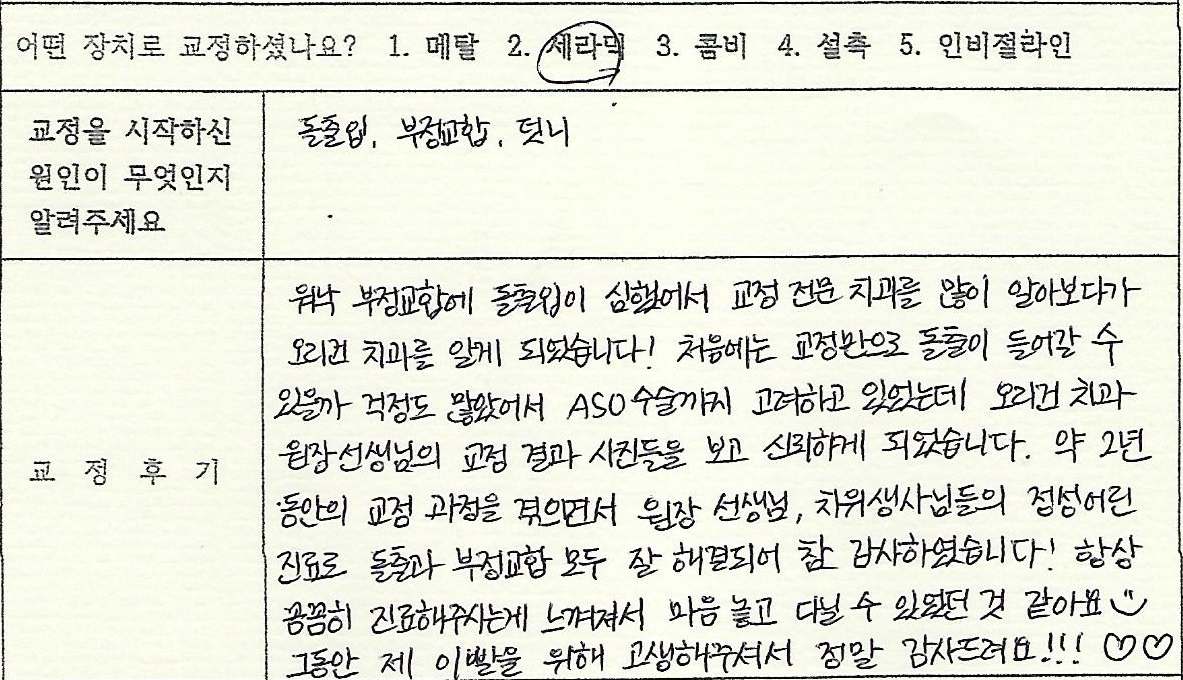 어떤 장치로 교정하셨나요? 1. 메탈 2. 세라믹 3. 콤비 4. 설측 5. 인비절라인
교정을 시작하신
원인이 무엇인지
알려주세요
돌출입, 부정교합, 덧니
교 정 후 기
워낙 부정교합에 돌출입이 심했어서 교정 전문 치과를 많이 알아보다가
오리건 치과를 알게 되었습니다! 처음에는 교정만으로 돌출이 들어갈 수
있을까 걱정도 많았어서 ASO수술까지 고려하고 있었는데 오리건 치과
원장선생님의 교정 결과 사진들을 보고 신뢰하게 되었습니다. 약 2년
동안의 교정 과정을 겪으면서 원장 선생님, 치위생사님들의 정성어린
진료로 돌출과 부정교합 모두 잘 해결되어 참 감사하였습니다! 항상
꼼꼼히 진료해주시는게 느껴져서 마음 놓고 다닐 수 있었던 것 같아요
그동안 제 이빨을 위해 고생해주셔서 정말 감사드려요!!! ♡♡